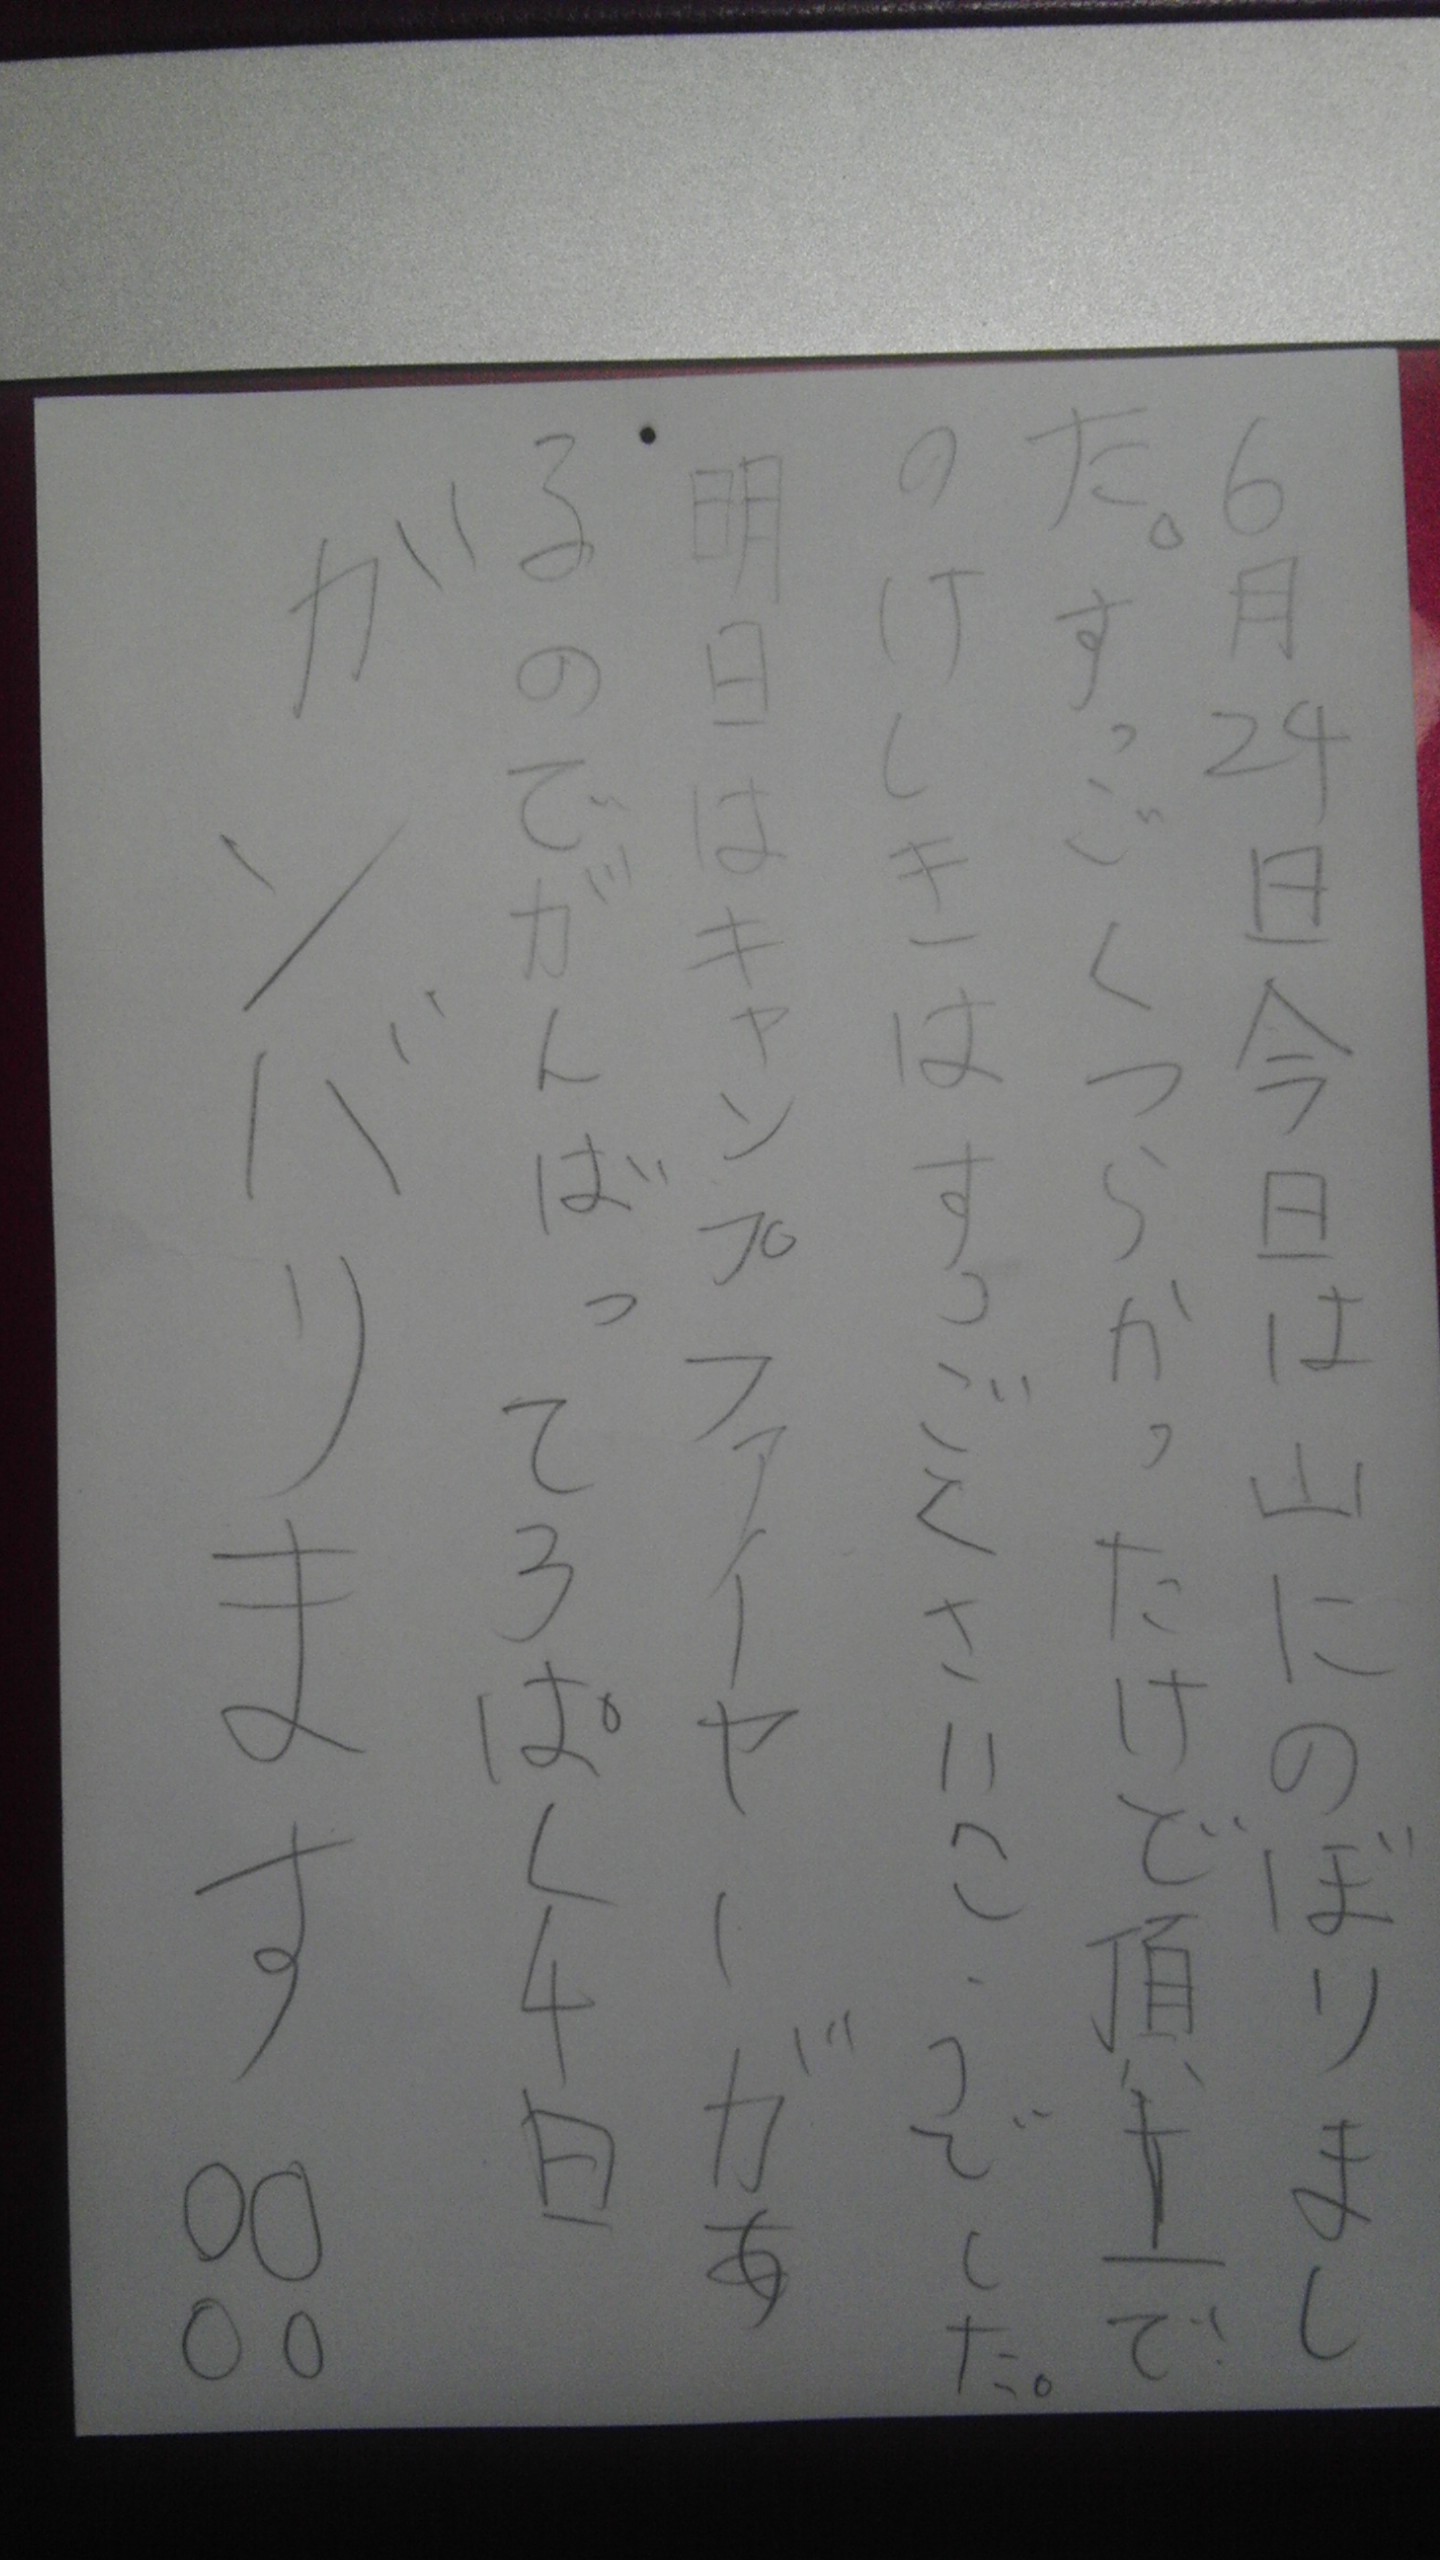 6月24日今日は山にのぼりまし
た。すっごくつらかったけど頂上で
のけしきはすっごくさいこうでした。
明日はキャンプファイヤーがあ
るのでがんばってろぱく4日
ガンバリます!!